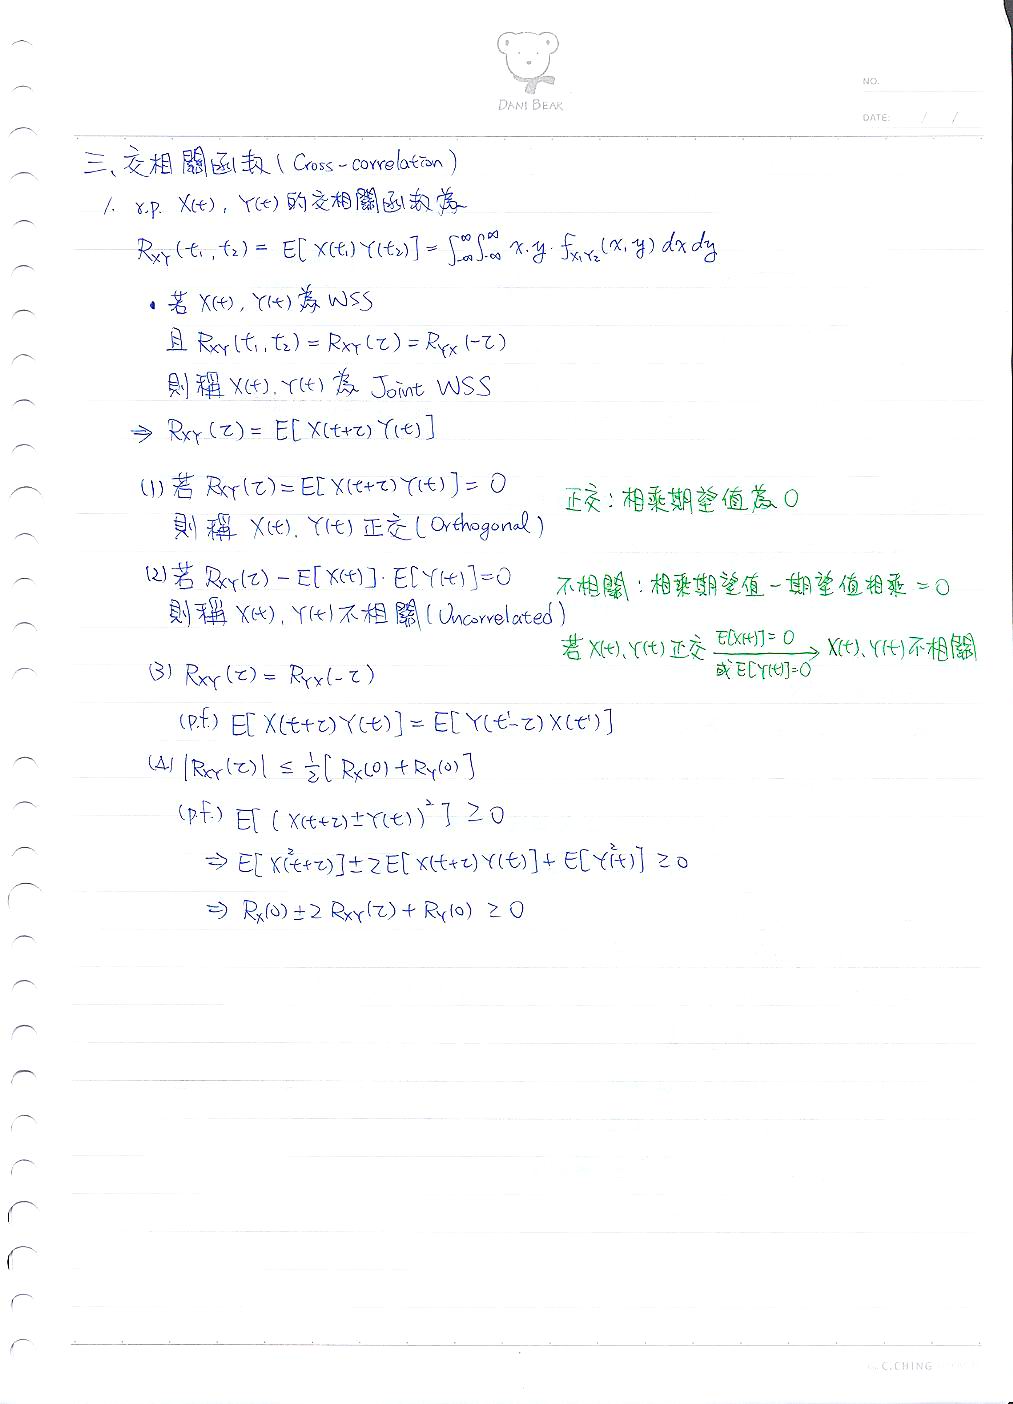 DANI BEAR
NO.
DATE: / /
三、交相關函数 (Cross-correlation)
1. r.p. X(t), Y(t) 的交相關函数為
R_XY(t₁, t₂) = E[X(t₁)Y(t₂)] = ∫_{-∞}^{∞}∫_{-∞}^{∞} x·y·f_{X₁Y₂}(x,y) dx dy
• 若 X(t), Y(t) 為 WSS
且 R_XY(t₁,t₂) = R_XY(τ) = R_YX(-τ)
則稱 X(t), Y(t) 為 Joint WSS
⇒ R_XY(τ) = E[X(t+τ)Y(t)]
(1) 若 R_XY(τ) = E[X(t+τ)Y(t)] = 0
則稱 X(t), Y(t) 正交 (Orthogonal)
正交：相乘期望值為 0
(2) 若 R_XY(τ) - E[X(t)]·E[Y(t)] = 0
則稱 X(t), Y(t) 不相關 (Uncorrelated)
不相關：相乘期望值 - 期望值相乘 = 0
若 X(t)、Y(t) 正交 E[X(t)]=0 或 E[Y(t)]=0 → X(t)、Y(t) 不相關
(3) R_XY(τ) = R_YX(-τ)
(p.f.) E[X(t+τ)Y(t)] = E[Y(t'-τ)X(t')]
(4) |R_XY(τ)| ≤ ½[R_X(0) + R_Y(0)]
(p.f.) E[(X(t+τ)±Y(t))²] ≥ 0
⇒ E[X²(t+τ)] ± 2E[X(t+τ)Y(t)] + E[Y²(t)] ≥ 0
⇒ R_X(0) ± 2R_XY(τ) + R_Y(0) ≥ 0
C.CHING